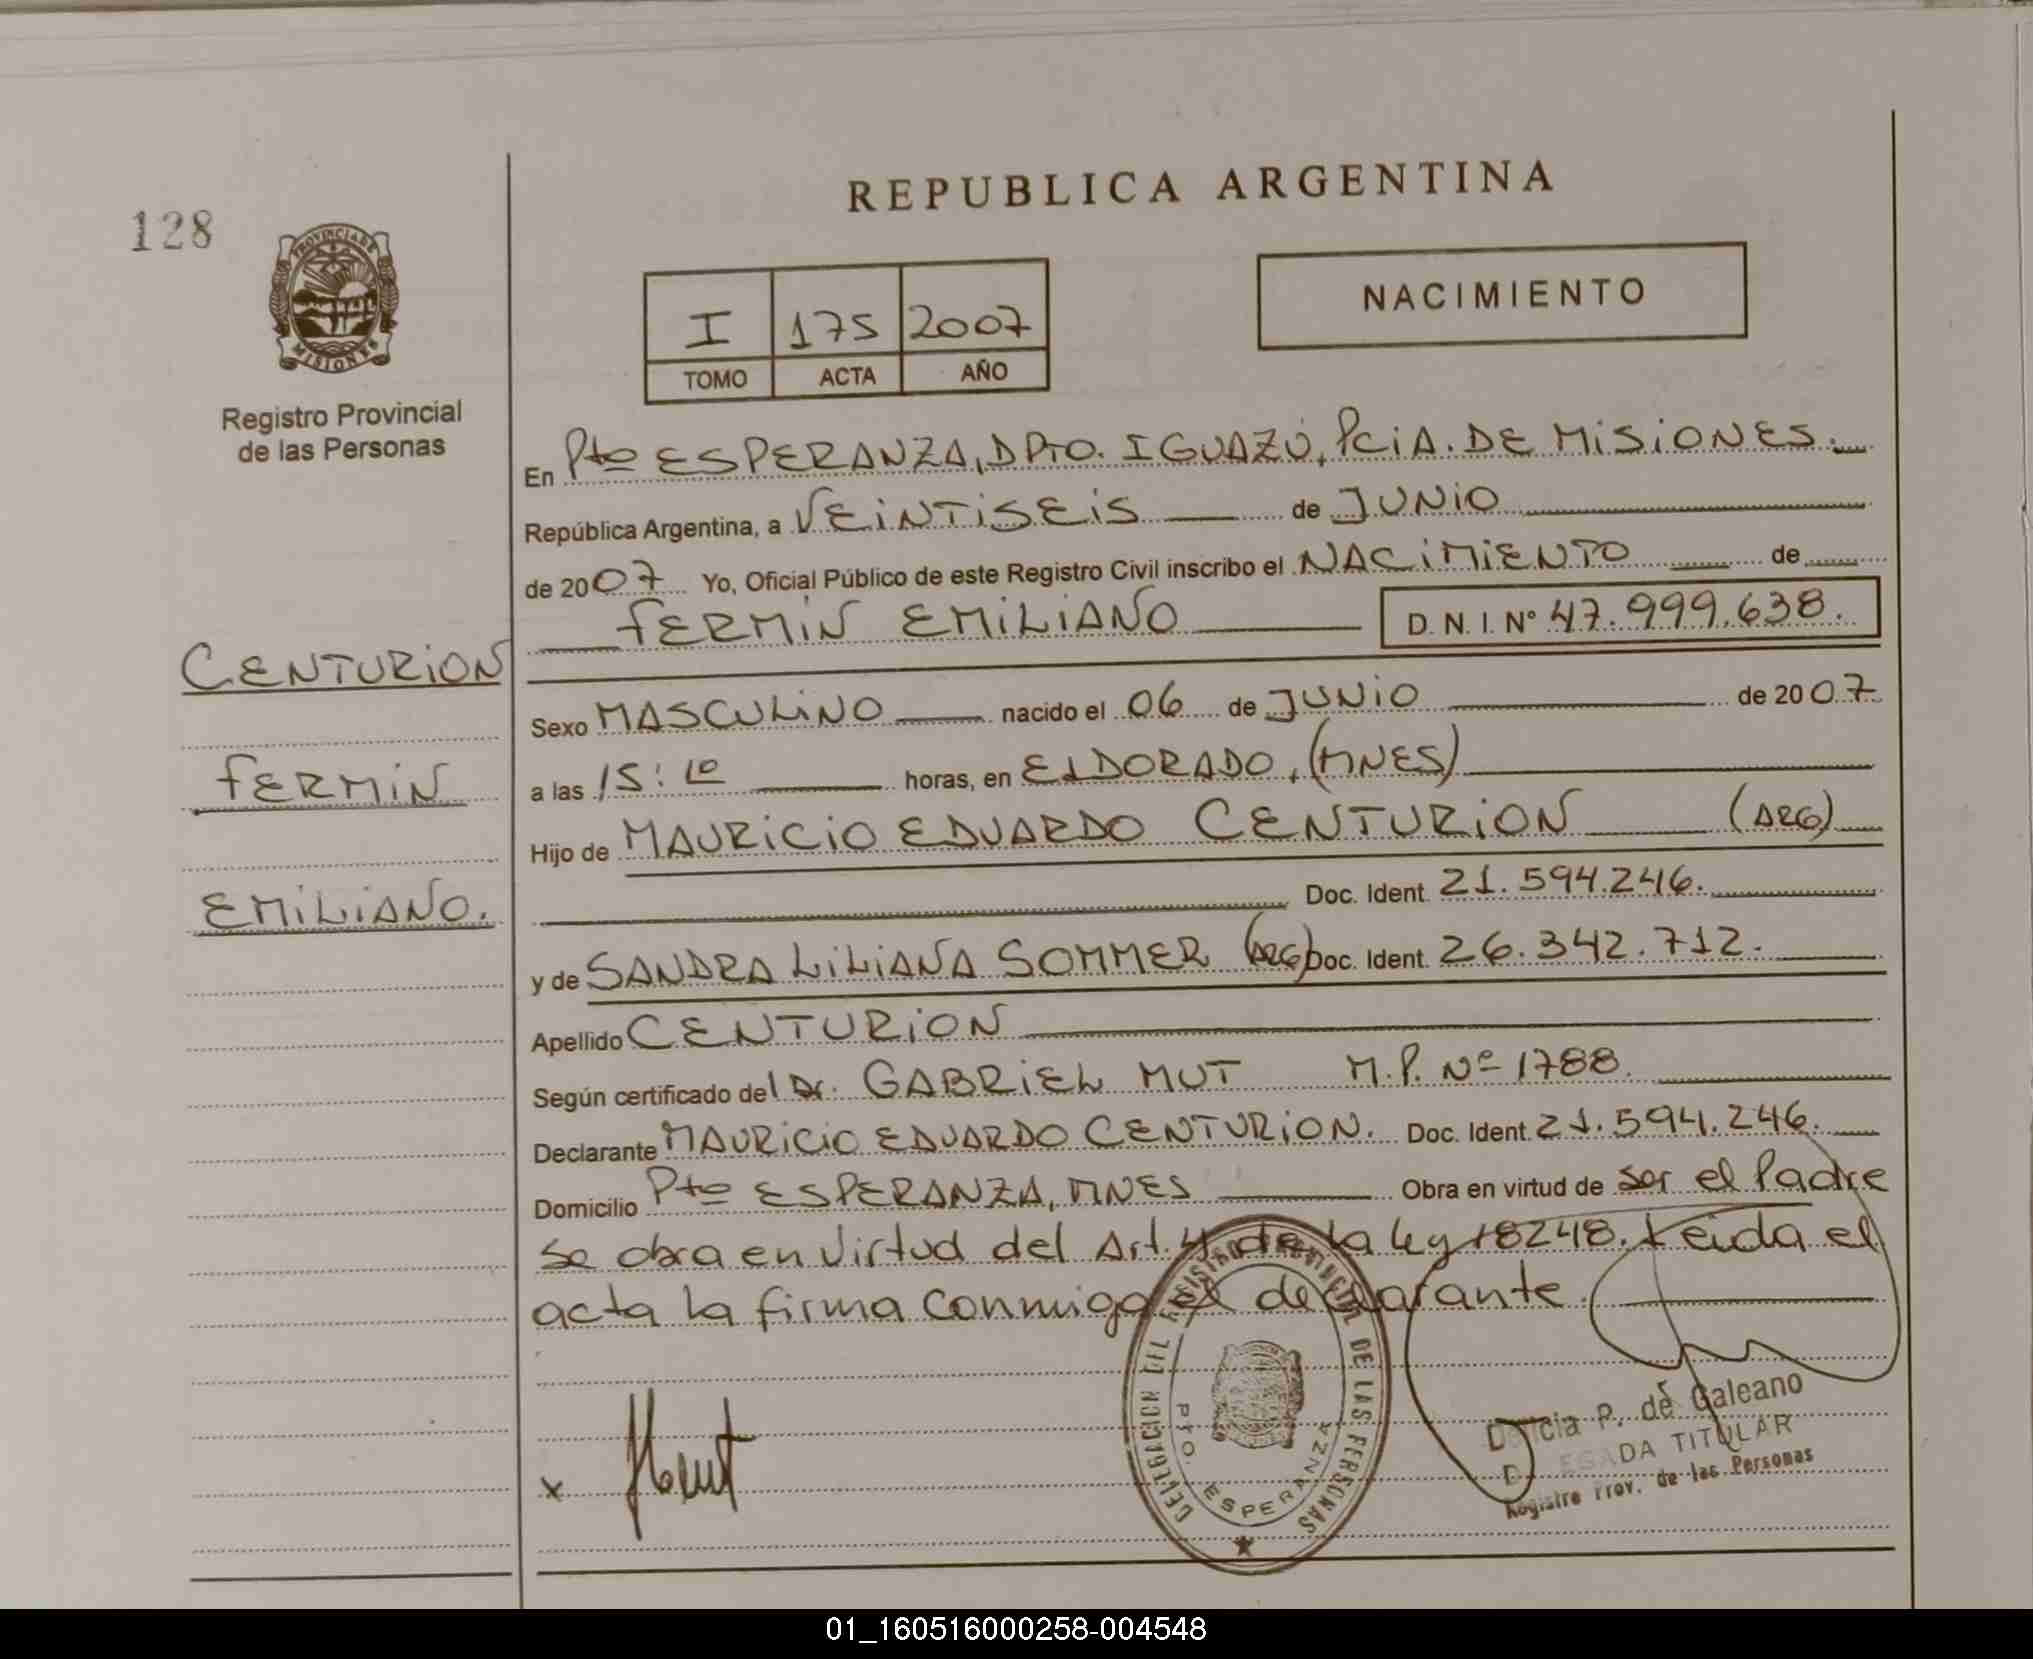 REPUBLICA ARGENTINA
128
PROVINCIA DE
MISIONES
Registro Provincial
de las Personas
I 175 2007
TOMO ACTA AÑO
NACIMIENTO
En Pto ESPERANZA, DPTO. IGUAZÚ, PCIA. DE MISIONES.
República Argentina, a VEINTISEIS de JUNIO
de 2007 Yo, Oficial Público de este Registro Civil inscribo el NACIMIENTO de
FERMIN EMILIANO D.N.I. Nº 47.999.638.
CENTURION
FERMIN
EMILIANO.
Sexo MASCULINO nacido el 06 de JUNIO de 2007
a las 15:10 horas, en ELDORADO, (MNES)
Hijo de MAURICIO EDUARDO CENTURION (ARG)
Doc. Ident. 21.594.246.
y de SANDRA LILIANA SOMMER (ARG) Doc. Ident. 26.342.712.
Apellido CENTURION
Según certificado del Dr. GABRIEL MUT M.P. Nº 1788.
Declarante MAURICIO EDUARDO CENTURION. Doc. Ident. 21.594.246.
Domicilio Pto ESPERANZA, MNES Obra en virtud de ser el Padre
se obra en virtud del Art. 4 de la Ley 18248. Leida el
acta la firma conmigo el declarante.
DELEGACION DEL REGISTRO PROVINCIAL DE LAS PERSONAS
PTO. ESPERANZA
x
P. de Galeano
DELEGADA TITULAR
Registro Prov. de las Personas
01_160516000258-004548